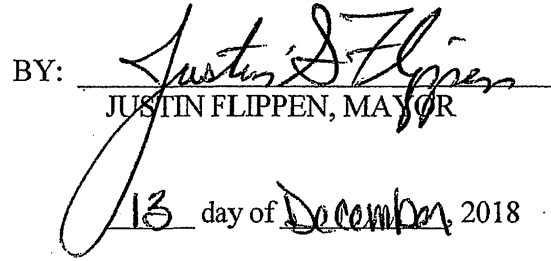 BY: Justin S Flippen
JUSTIN FLIPPEN, MAYOR
13 day of December, 2018